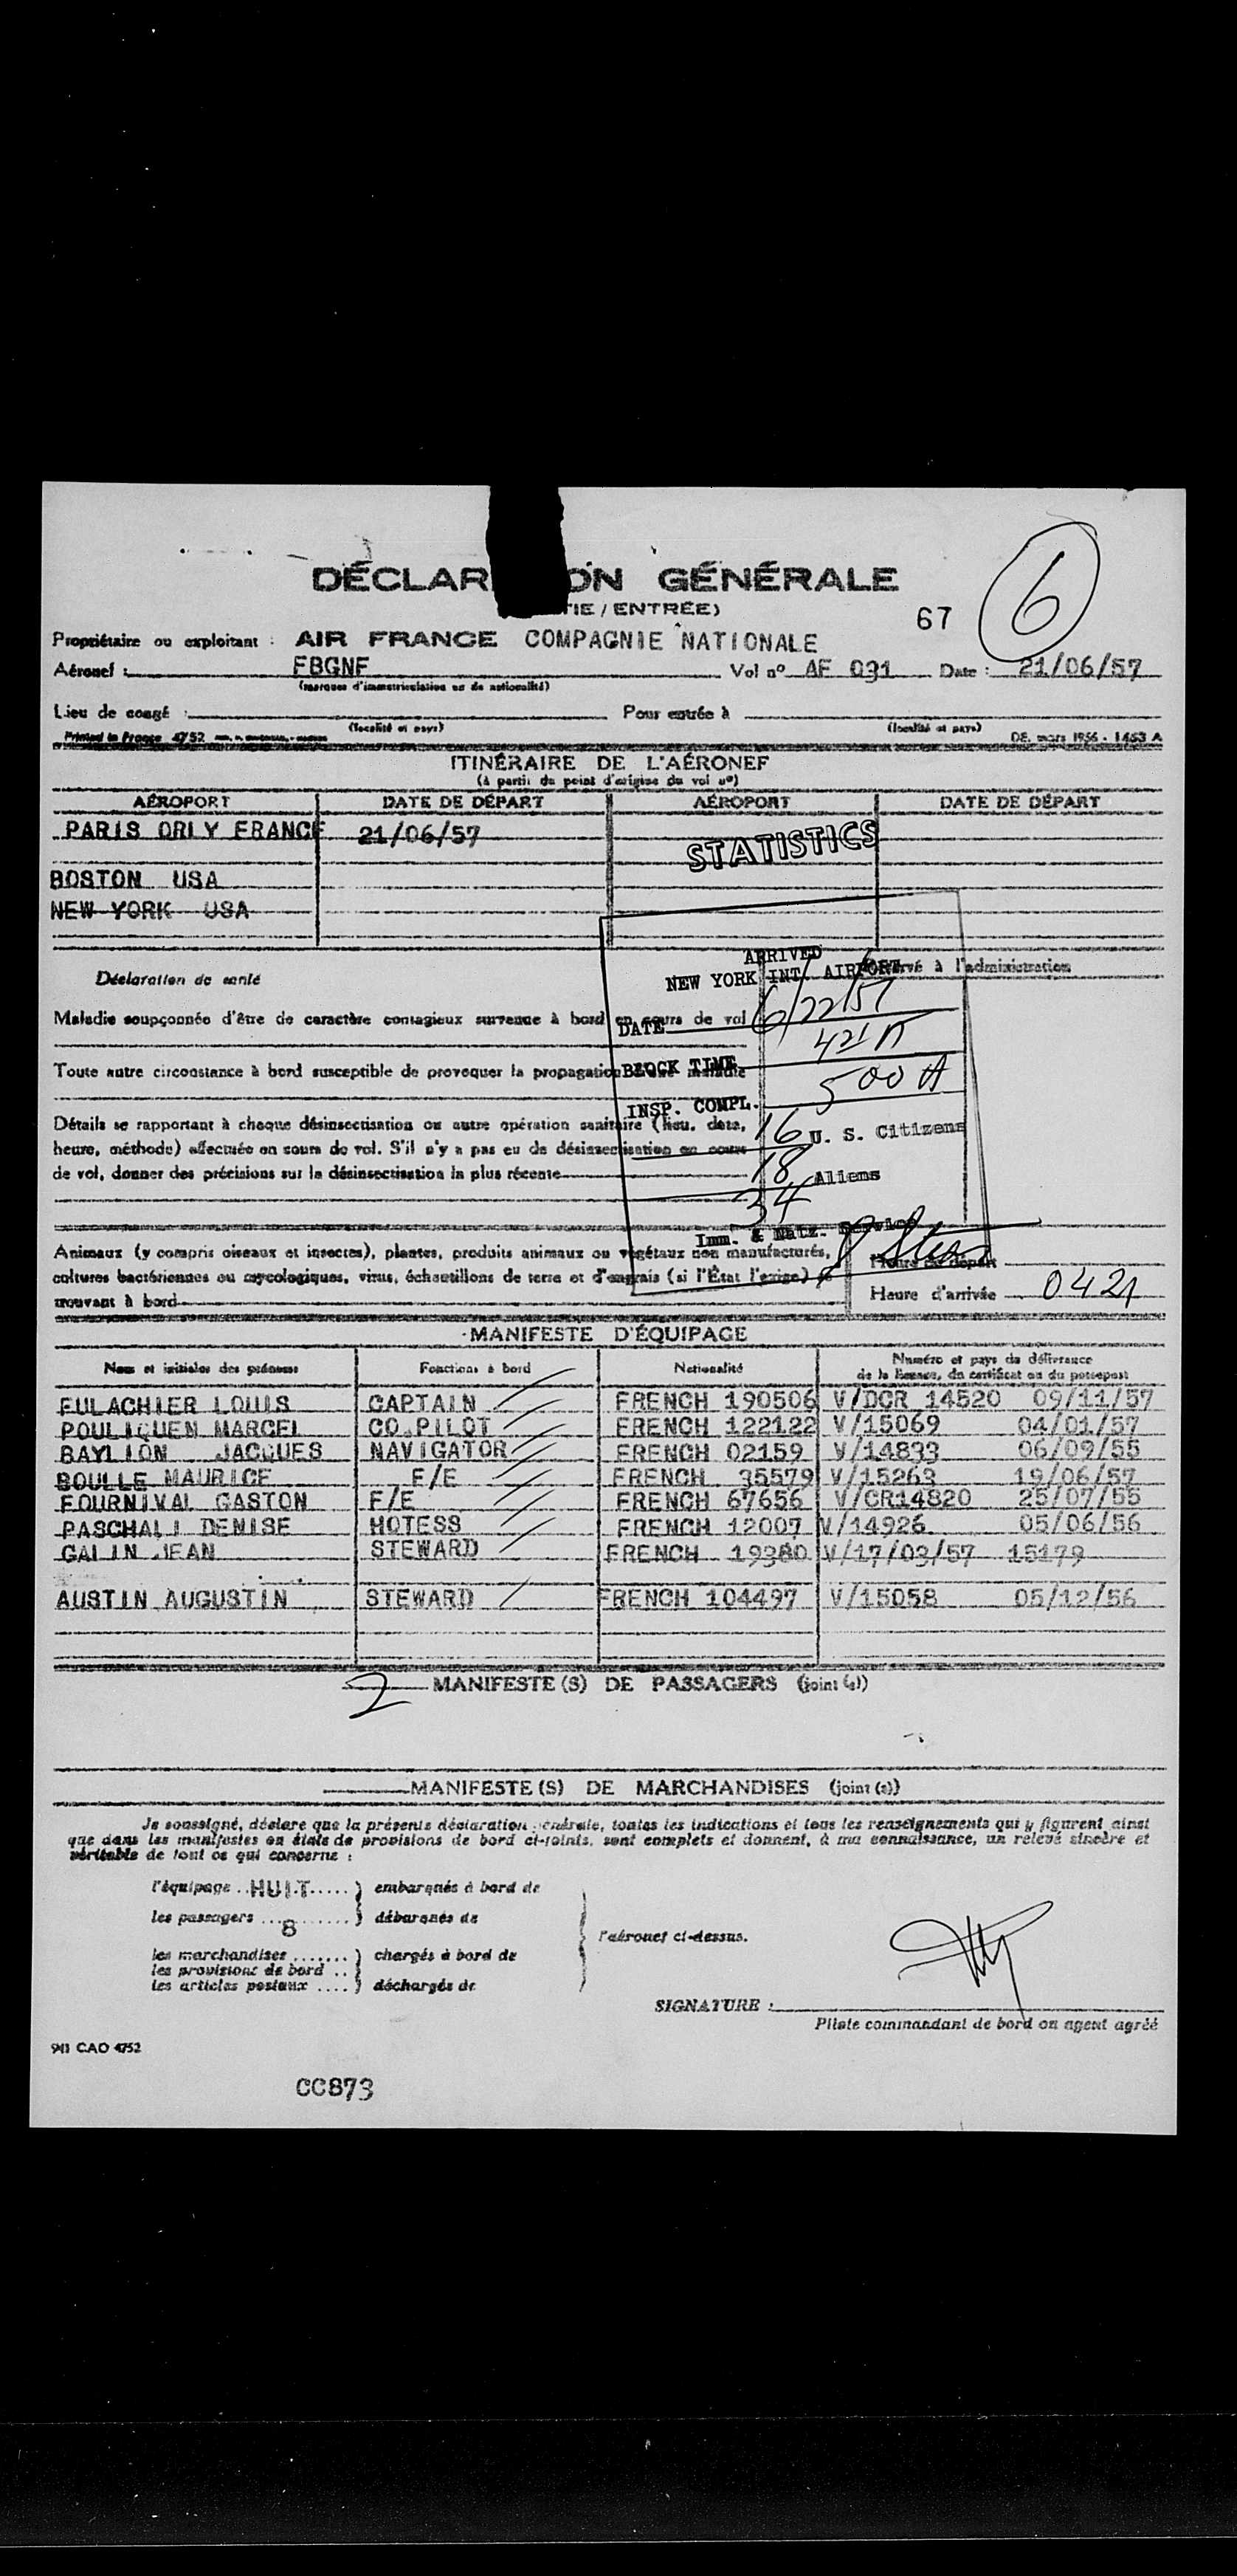 DÉCLAR ON GÉNÉRALE
TIE / ENTRÉE)
67
6
Propriétaire ou exploitant : AIR FRANCE COMPAGNIE NATIONALE
Aéronef : FBGNF Vol nº AF 031 Date : 21/06/57
(marques d'immatriculation ou de nationalité)
Lieu de congé : Pour entrée à
(localité et pays) (localité et pays)
Printed in France 4752 DE. mars 1956 - 1463 A
ITINÉRAIRE DE L'AÉRONEF
(à partir du point d'origine du vol nº)
AÉROPORT DATE DE DÉPART AÉROPORT DATE DE DÉPART
PARIS ORLY FRANCE 21/06/57
STATISTICS
BOSTON USA
NEW YORK USA
ARRIVED
NEW YORK INT. AIRPORT
DATE 6/22/57
BLOCK TIME 421 A
INSP. COMPL. 500 A
16 U. S. Citizens
18 Aliens
34
Imm. & Natz. Service
Déclaration de santé
à l'administration
Maladie soupçonnée d'être de caractère contagieux survenue à bord en cours de vol
Toute autre circonstance à bord susceptible de provoquer la propagation maladie
Détails se rapportant à chaque désinsectisation ou autre opération sanitaire (lieu, date,
heure, méthode) effectuée en cours de vol. S'il n'y a pas eu de désinsectisation en cours
de vol, donner des précisions sur la désinsectisation la plus récente
Animaux (y compris oiseaux et insectes), plantes, produits animaux ou végétaux non manufacturés,
cultures bactériennes ou mycologiques, virus, échantillons de terre et d'engrais (si l'État l'exige) se
trouvant à bord
Heure de départ
Heure d'arrivée 0421
MANIFESTE D'ÉQUIPAGE
Noms et initiales des prénoms Fonctions à bord Nationalité Numéro et pays de délivrance
de la licence, du certificat ou du passeport
FULACHIER LOUIS CAPTAIN FRENCH 190506 V/DCR 14520 09/11/57
POULIQUEN MARCEL CO.PILOT FRENCH 122122 V/15069 04/01/57
BAYLION JACQUES NAVIGATOR FRENCH 02159 V/14833 06/09/55
BOULLE MAURICE F/E FRENCH 35579 V/15263 19/06/57
FOURNIVAL GASTON F/E FRENCH 67656 V/CR14820 25/07/55
PASCHALI DENISE HOTESS FRENCH 12007 V/14926 05/06/56
GALIN JEAN STEWARD FRENCH 19380 V/17/03/57 15179
AUSTIN AUGUSTIN STEWARD FRENCH 104497 V/15058 05/12/56
2 MANIFESTE(S) DE PASSAGERS (joint (s))
MANIFESTE(S) DE MARCHANDISES (joint (s))
Je soussigné, déclare que la présente déclaration générale, toutes les indications et tous les renseignements qui y figurent ainsi
que dans les manifestes ou états de provisions de bord ci-joints, sont complets et donnent, à ma connaissance, un relevé sincère et
véritable de tout ce qui concerne :
l'équipage ..HUIT..... ) embarqués à bord de
les passagers ...8....... ) débarqués de
l'aéronef ci-dessus.
les marchandises ....... ) chargés à bord de
les provisions de bord ..
les articles postaux .... ) déchargés de
SIGNATURE :
Pilote commandant de bord ou agent agréé
941 CAO 4752
CC873